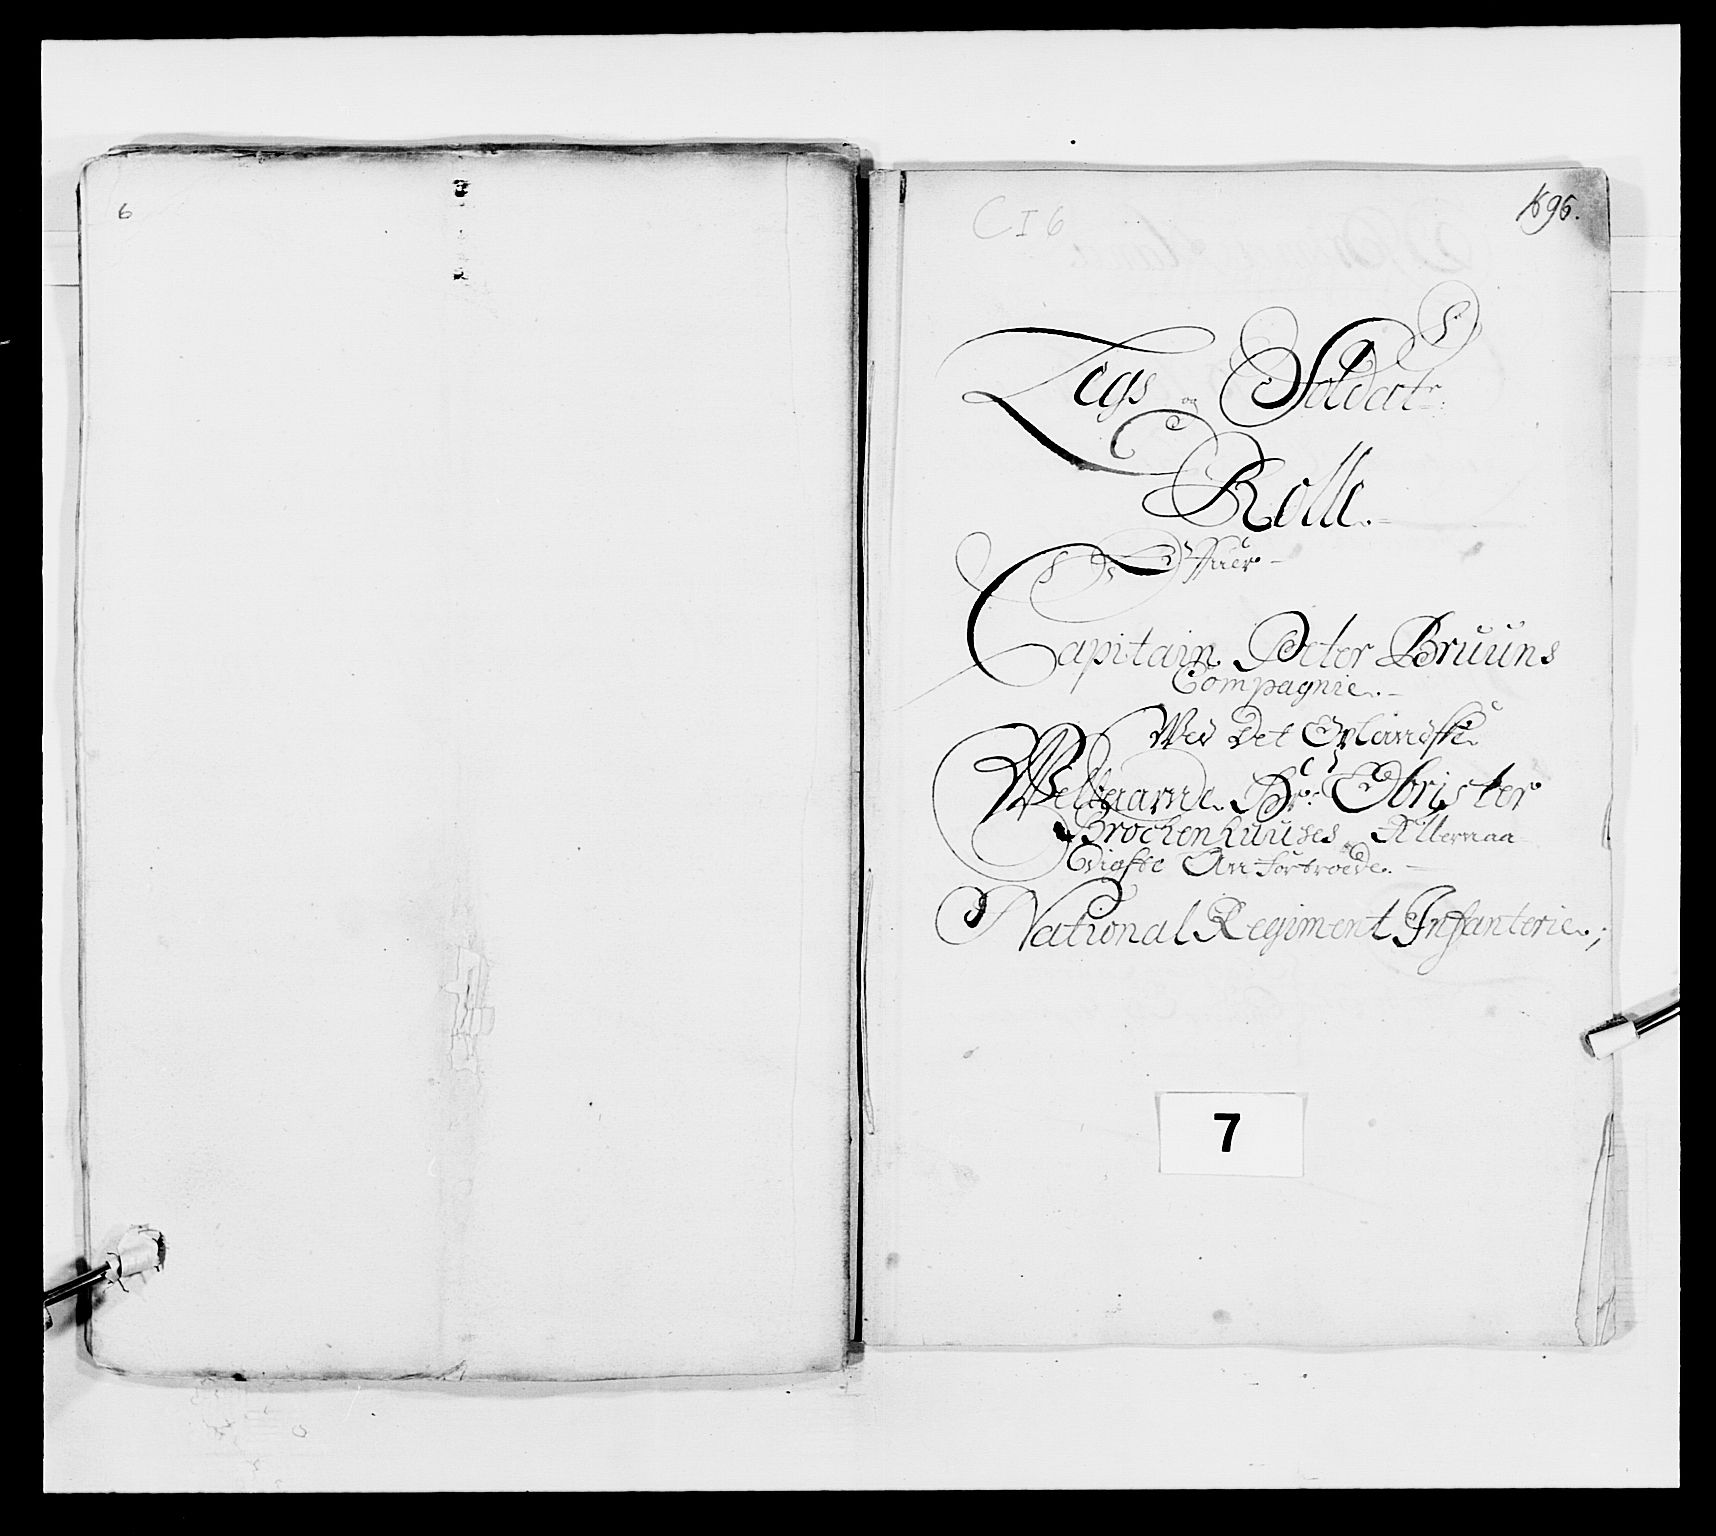 6
C I 6
1696.
Legs og Soldat
Rolle.
Offuer
Capitain Peter Bruuns
Compagnie.
Ved Det Oplandske
Welbaarne Hr: Obrister
Brockenhuuses Allernaa
digste An fortroede.
National Regiment Infanterie;
7